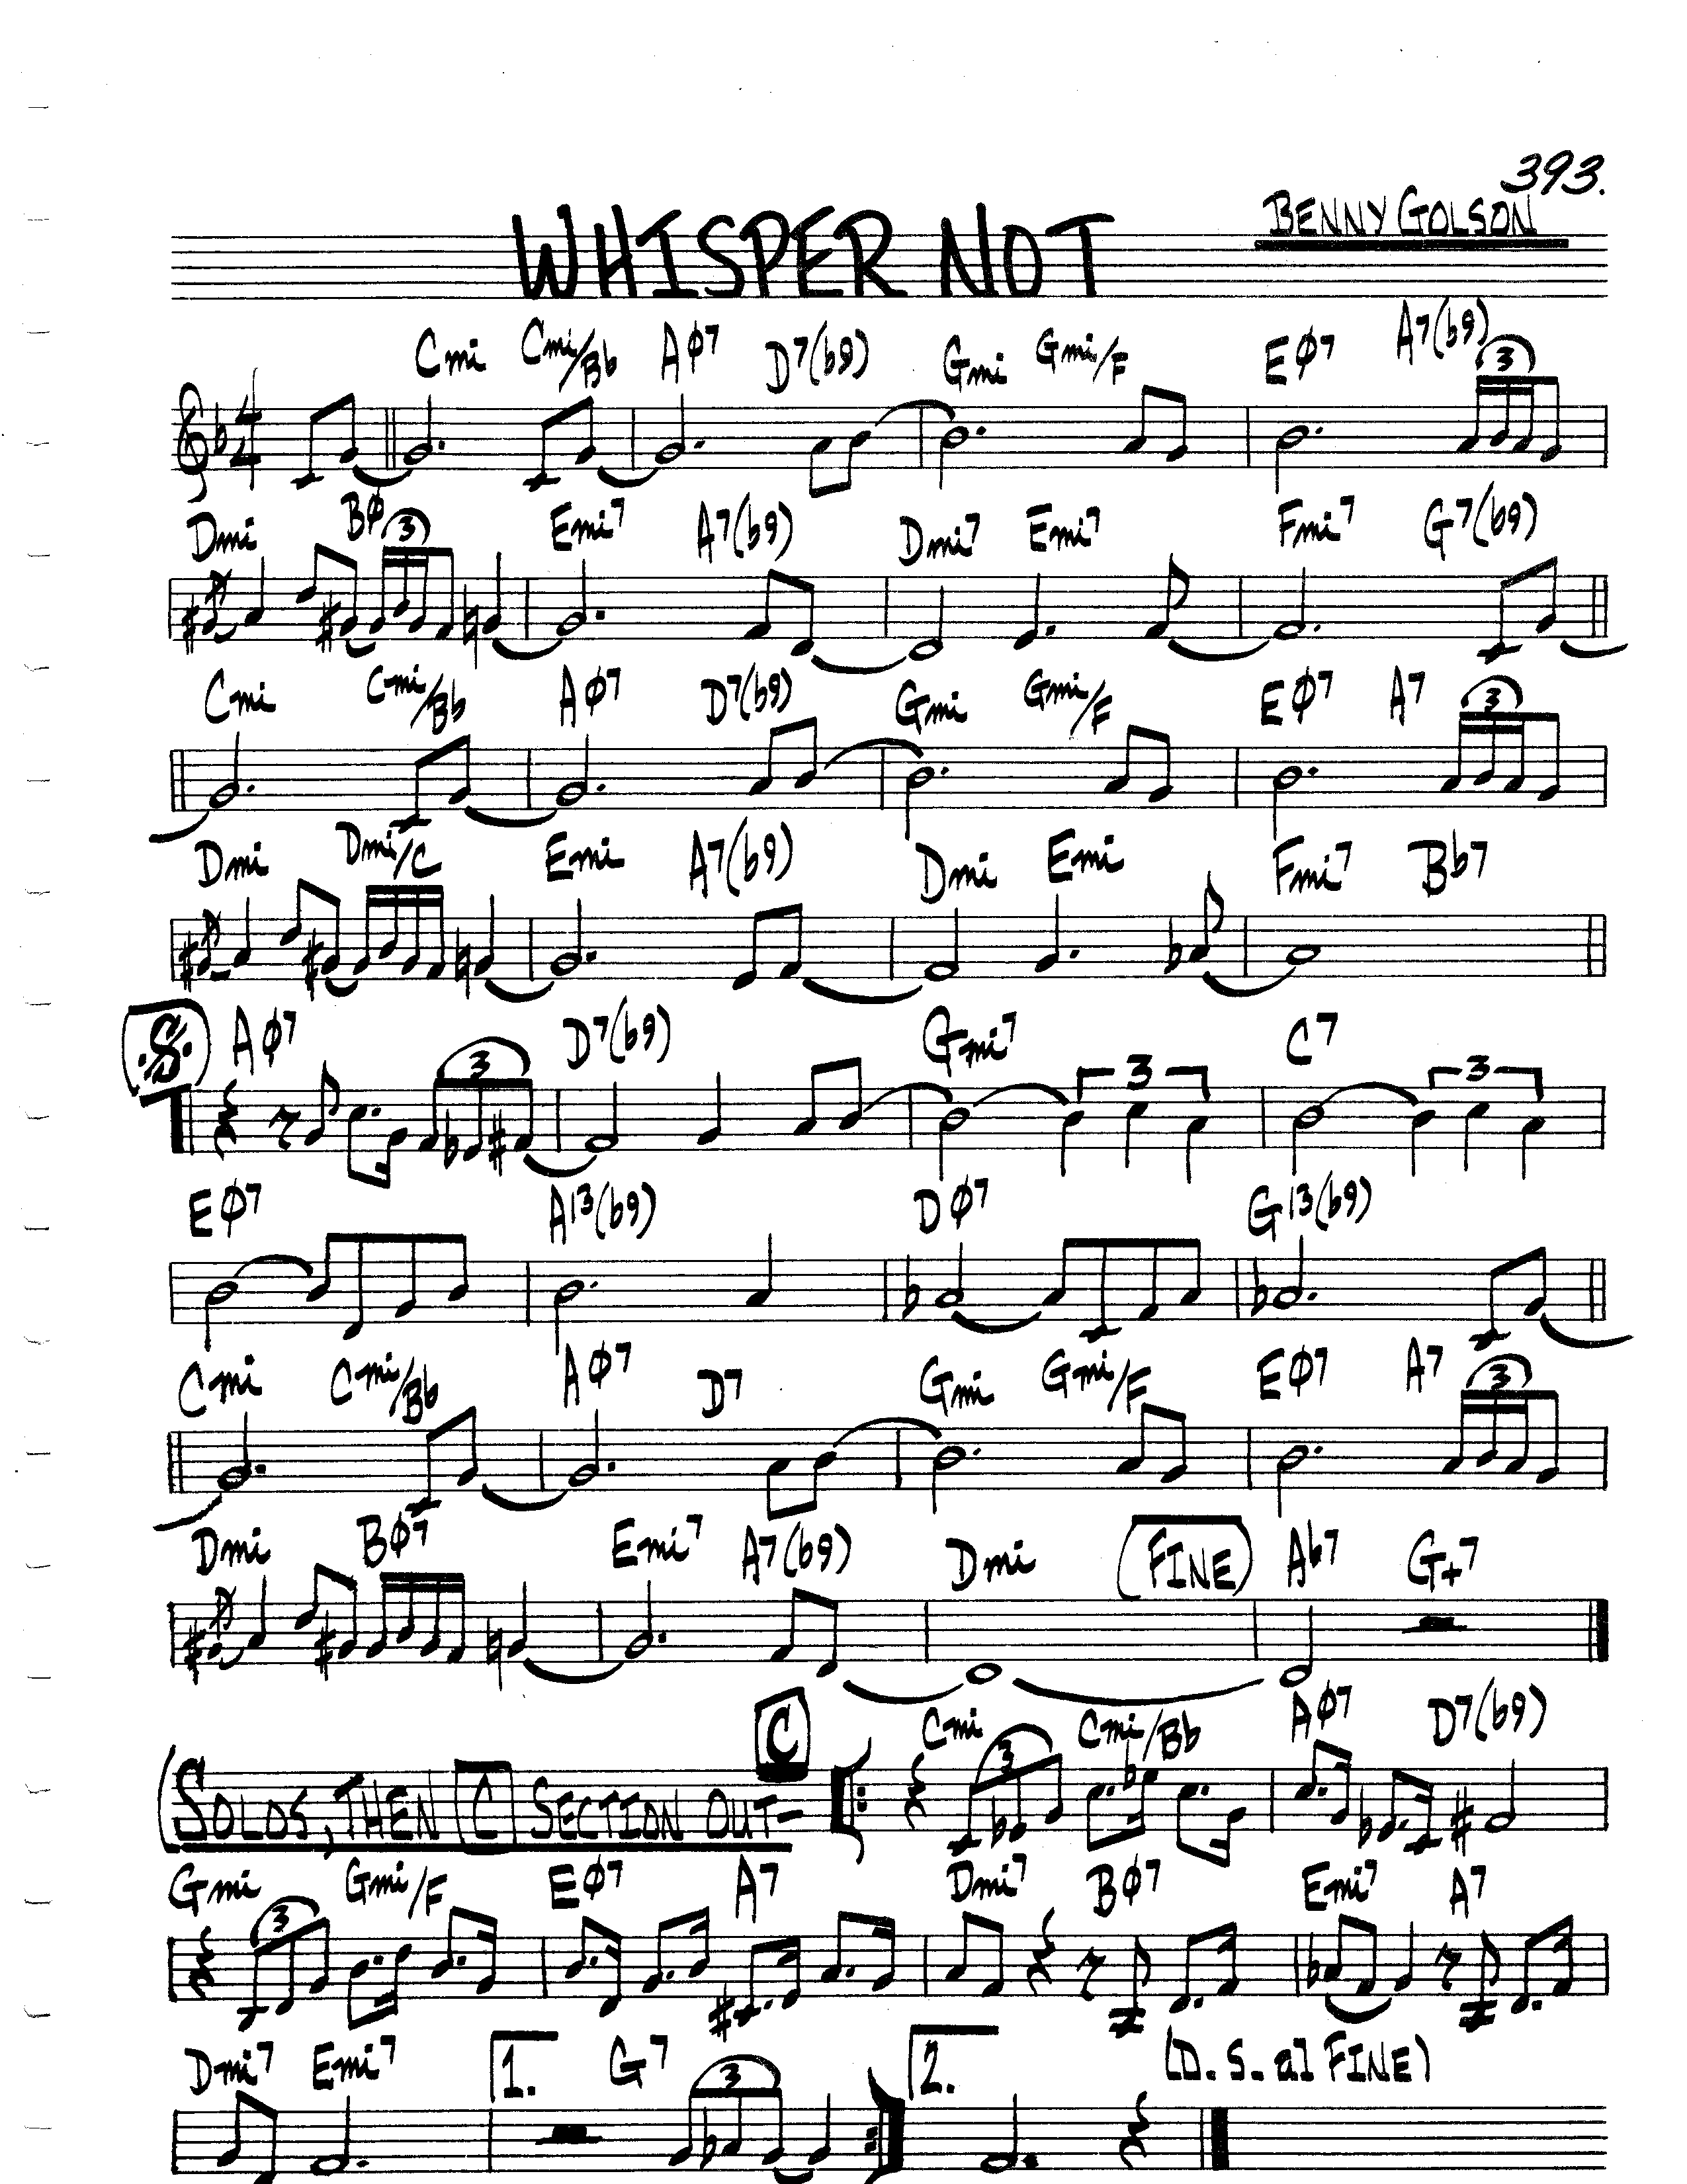 393.
WHISPER NOT
BENNY GOLSON
Cmi Cmi/Bb AØ7 D7(b9) Gmi Gmi/F EØ7 A7(b9)
4
4
3
Dmi BØ Emi7 A7(b9) Dmi7 Emi7 Fmi7 G7(b9)
3
Cmi Cmi/Bb AØ7 D7(b9) Gmi Gmi/F EØ7 A7
3
Dmi Dmi/C Emi A7(b9) Dmi Emi Fmi7 Bb7
AØ7 D7(b9) Gmi7 C7
3 3 3
EØ7 A13(b9) DØ7 G13(b9)
Cmi Cmi/Bb AØ7 D7 Gmi Gmi/F EØ7 A7
3
Dmi BØ7 Emi7 A7(b9) Dmi (FINE) Ab7 G+7
(SOLOS, THEN C SECTION OUT- C Cmi Cmi/Bb AØ7 D7(b9)
3
Gmi Gmi/F EØ7 A7 Dmi7 BØ7 Emi7 A7
3
Dmi7 Emi7 1. G7 2. (D.S. al FINE)
3